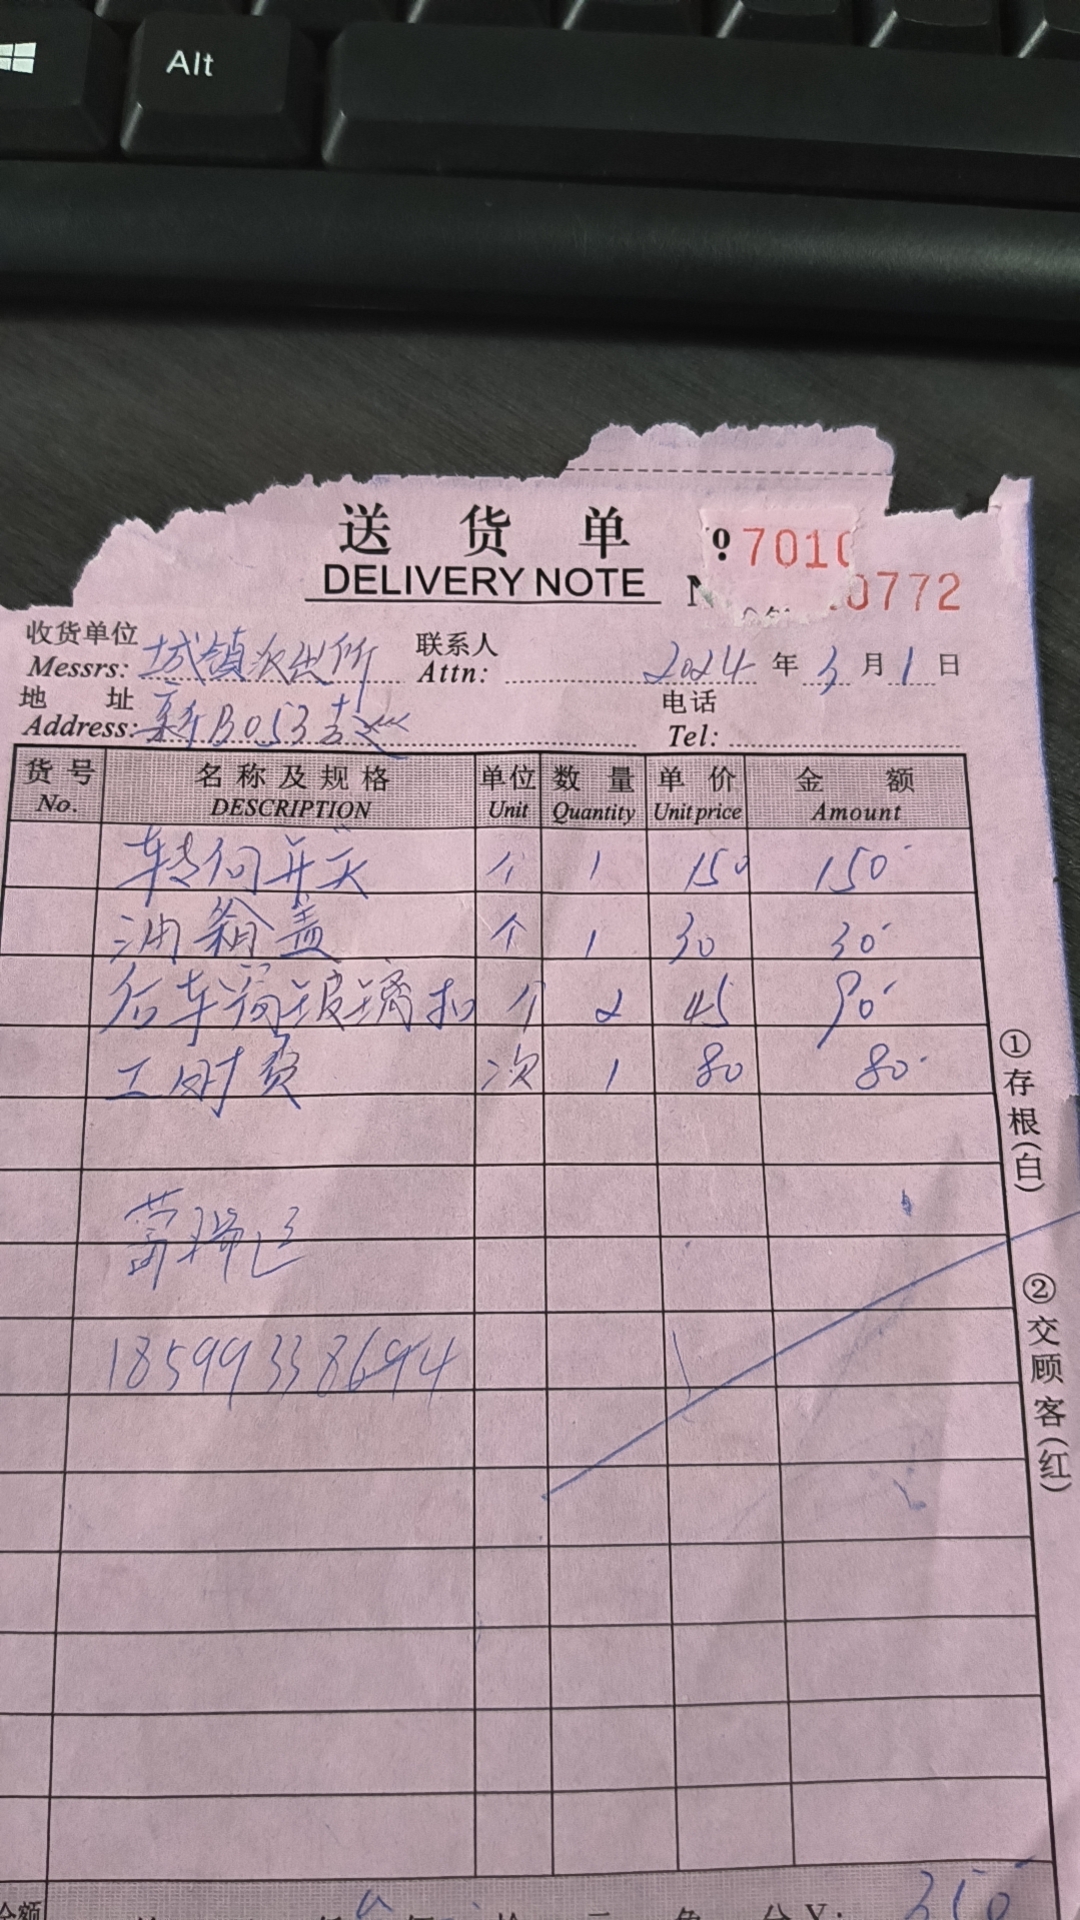 Alt
送 货 单
DELIVERY NOTE
o 7010
N 0772
收货单位 Messrs: 城镇派出所 联系人 Attn: 2024 年 3 月 1 日
地 址 Address: 新B053 电话 Tel:
货 号 No. 名 称 及 规 格 DESCRIPTION 单位 Unit 数 量 Quantity 单 价 Unit price 金 额 Amount
转向开关 个 1 150 150
油箱盖 个 1 30 30
后车窗玻璃扣 个 2 45 90
工时费 次 1 80 80
18599338694
350
①存根(白)
②交顾客(红)